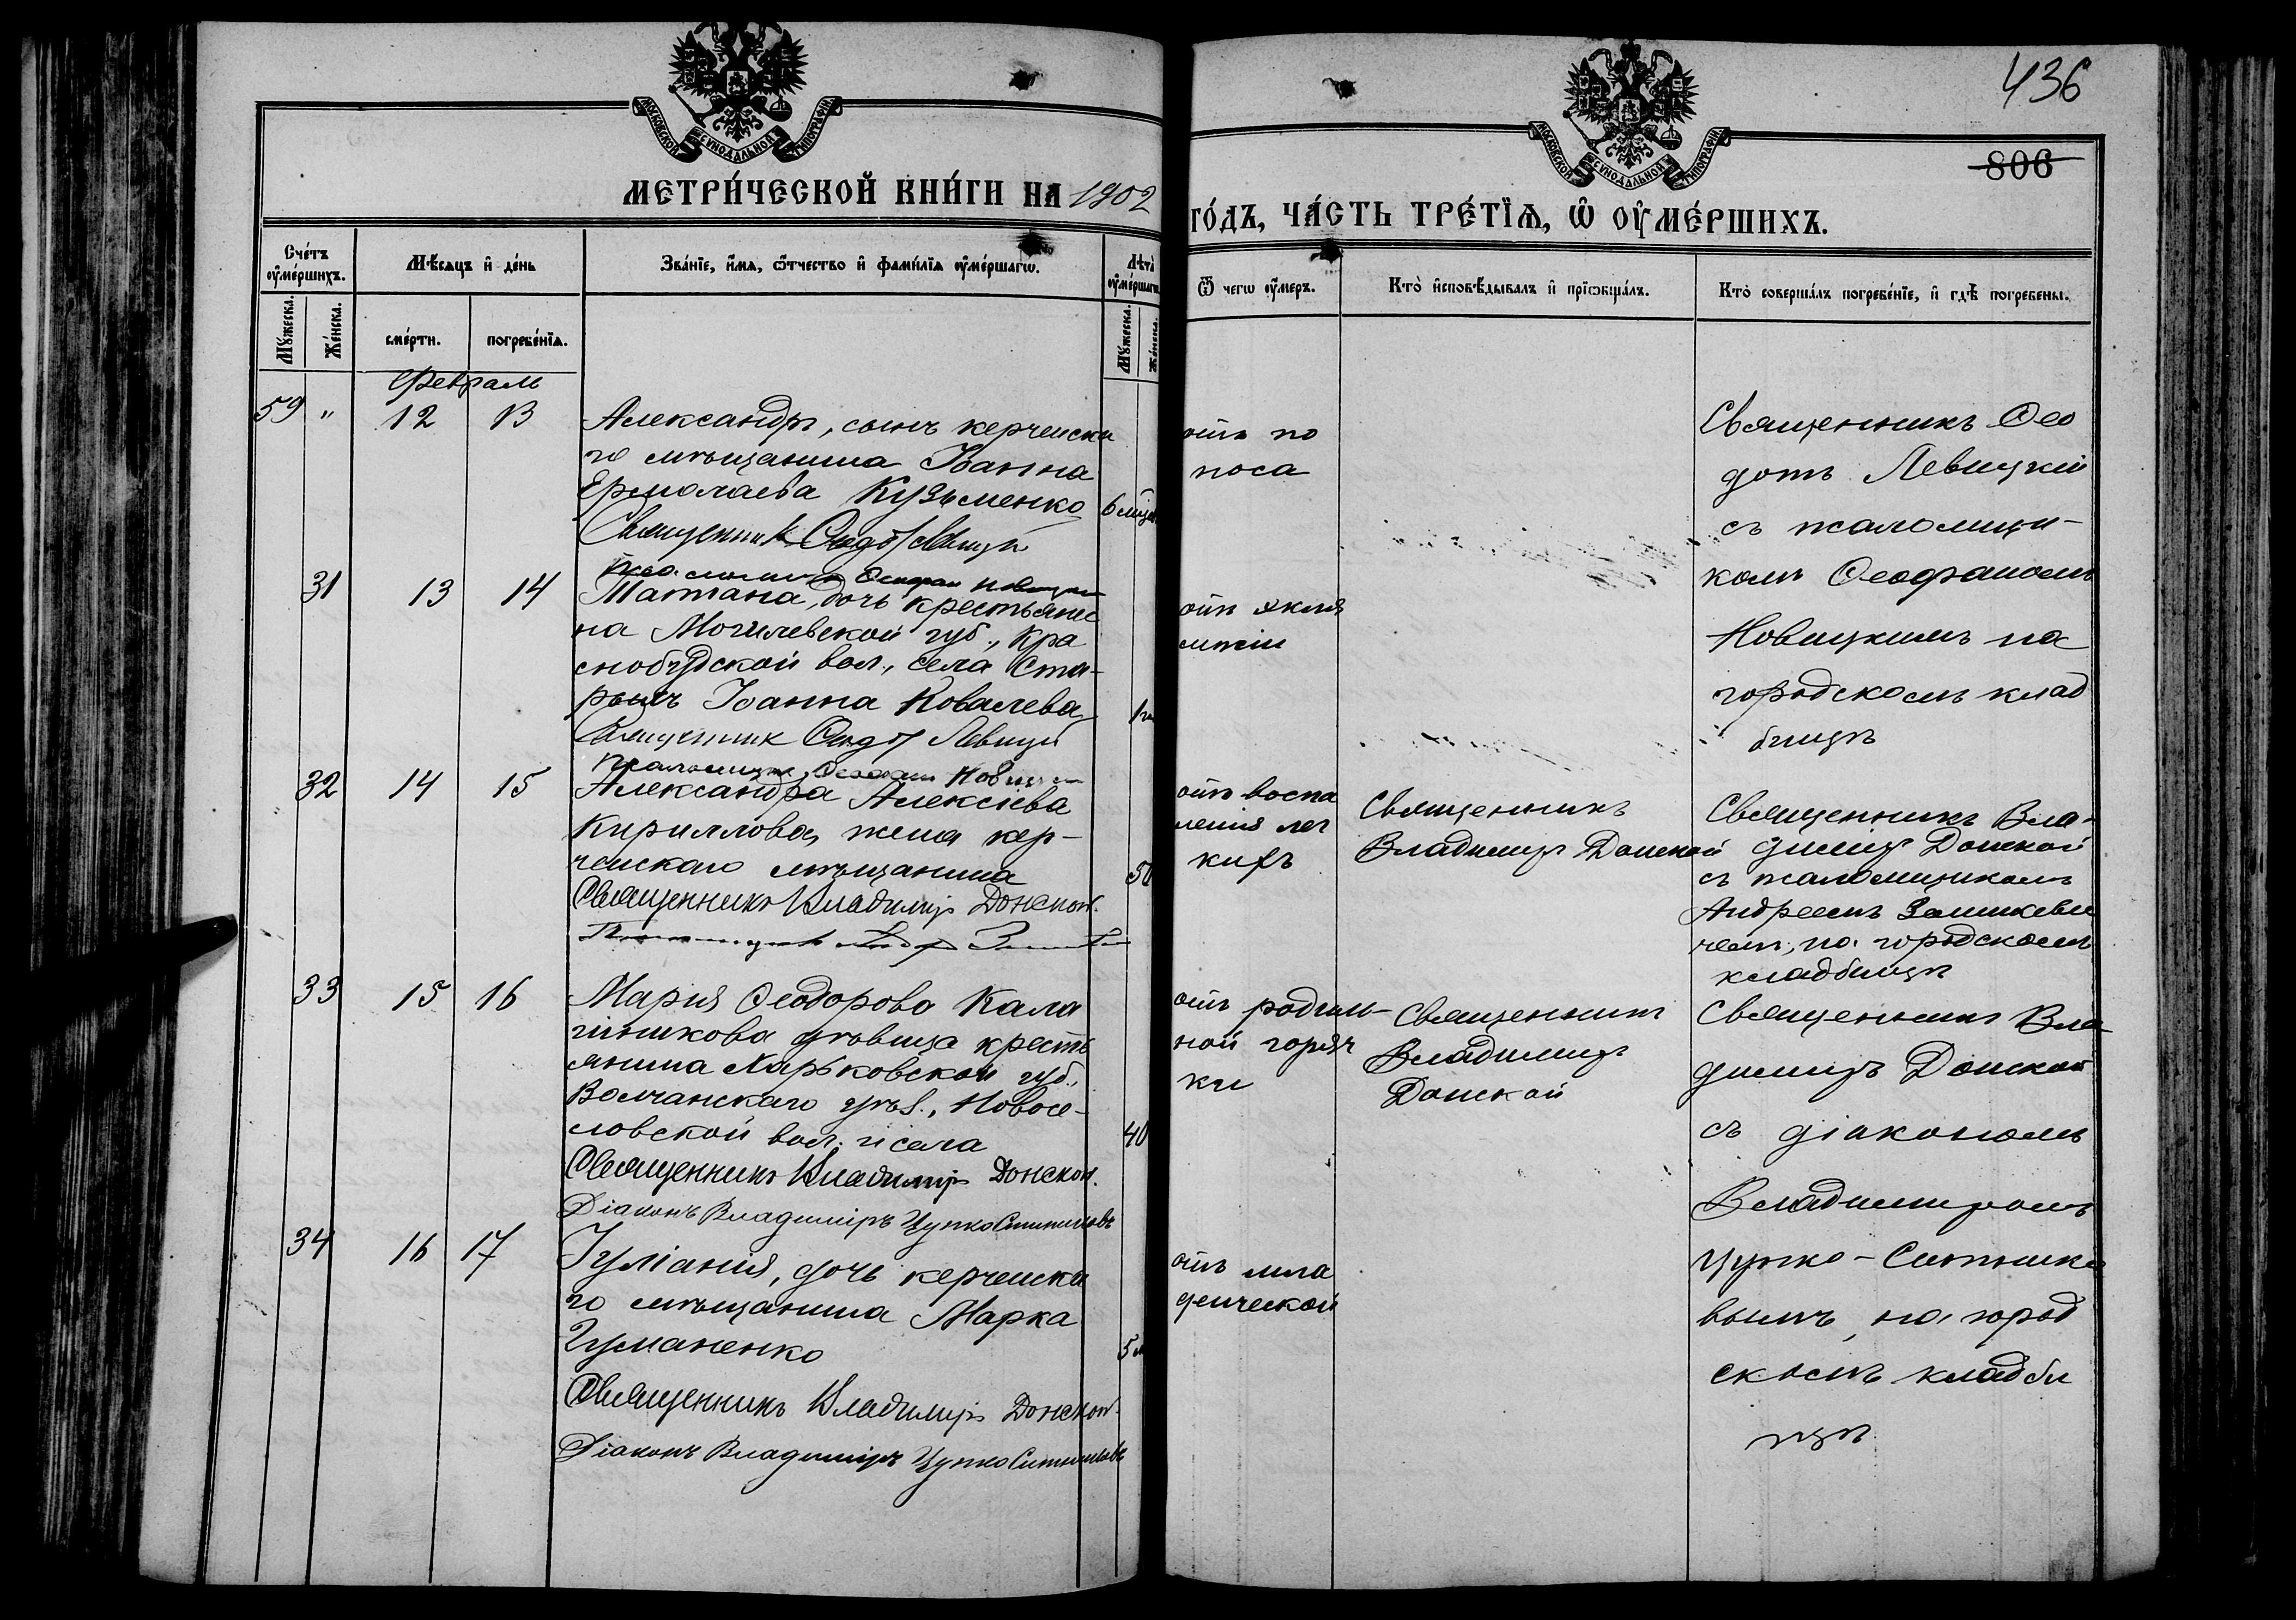 436
806
МОСКОВСКОЙ СѴНОДАЛЬНОЙ ТИПОГРАФІИ
МОСКОВСКОЙ СѴНОДАЛЬНОЙ ТИПОГРАФІИ
МЕТРИ́ЧЕСКОЙ КНИ́ГИ НА 1902
ГО́ДЪ, ЧА́СТЬ ТРЕ́ТЇѦ, Ѡ ОУМЕ́РШИХЪ.
Сче́тъ оуме́ршихъ.
Мꙋжеска.
Же́нска.
Мѣсяцъ и де́нь
сме́рти.
погребе́нїѧ.
Зва́нїе, и́мѧ, ѻ҆́тчество и фами́лїѧ оуме́ршагѡ.
Лѣта̀ оуме́ршагѡ
Мꙋжеска.
Же́нска.
Ѿ чегѡ оу́меръ.
Кто̀ и҆сповѣ́дывалъ и прїѡбща́лъ.
Кто̀ соверша́лъ погребе́нїе, и гдѣ̀ погребены.
Февраль
59 " 12 13
Александръ, сынъ керченска
го мѣщанина Іоанна
Ермолаева Кузьменко
6 мѣс
Священникъ Ѳеодотъ Левицкій
Псаломщикъ Ѳеофанъ Новицкій
отъ по
носа
Священникъ Ѳео
дотъ Левицкій
съ псаломщи-
комъ Ѳеофаномъ
Новицкимъ на
городскомъ клад
бищѣ
31 13 14
Татіана, дочь крестьяни
на Могилевской губ., Кра
снобудской вол., села Ста-
рымъ Іоанна Ковалева
1 г
Священникъ Ѳеодотъ Левицкій
Псаломщикъ Ѳеофанъ Новицкій
отъ экла
мпсіи
32 14 15
Александра Алексіева
Кириллова, жена кер-
ченскаго мѣщанина
50
Священникъ Владиміръ Донской.
отъ воспа
ленія лег
кихъ
Священникъ
Владиміръ Донской
Священникъ Вла-
диміръ Донской
съ псаломщикомъ
Андреемъ
чемъ, на городскомъ
кладбищѣ
33 15 16
Марія Ѳеодорова Кала
шникова дѣвица крестъ
янина Харьковской губ.,
Волчанскаго уѣзд., Новосе-
ловской вол. и села
40
Священникъ Владиміръ Донской.
Діаконъ Владиміръ Цупко Ситниковъ
отъ родиль-
ной горяч
ки
Священникъ
Владиміръ
Донской
Священникъ Вла-
диміръ Донской
съ діакономъ
Владиміромъ
Цупко-Ситнико
вымъ, на город
скомъ кладби
щѣ
34 16 17
Іуліанія, дочь керченска
го мѣщанина Марка
Чуманенко
5 м
Священникъ Владиміръ Донской.
Діаконъ Владиміръ Цупко Ситниковъ
отъ мла
денческой